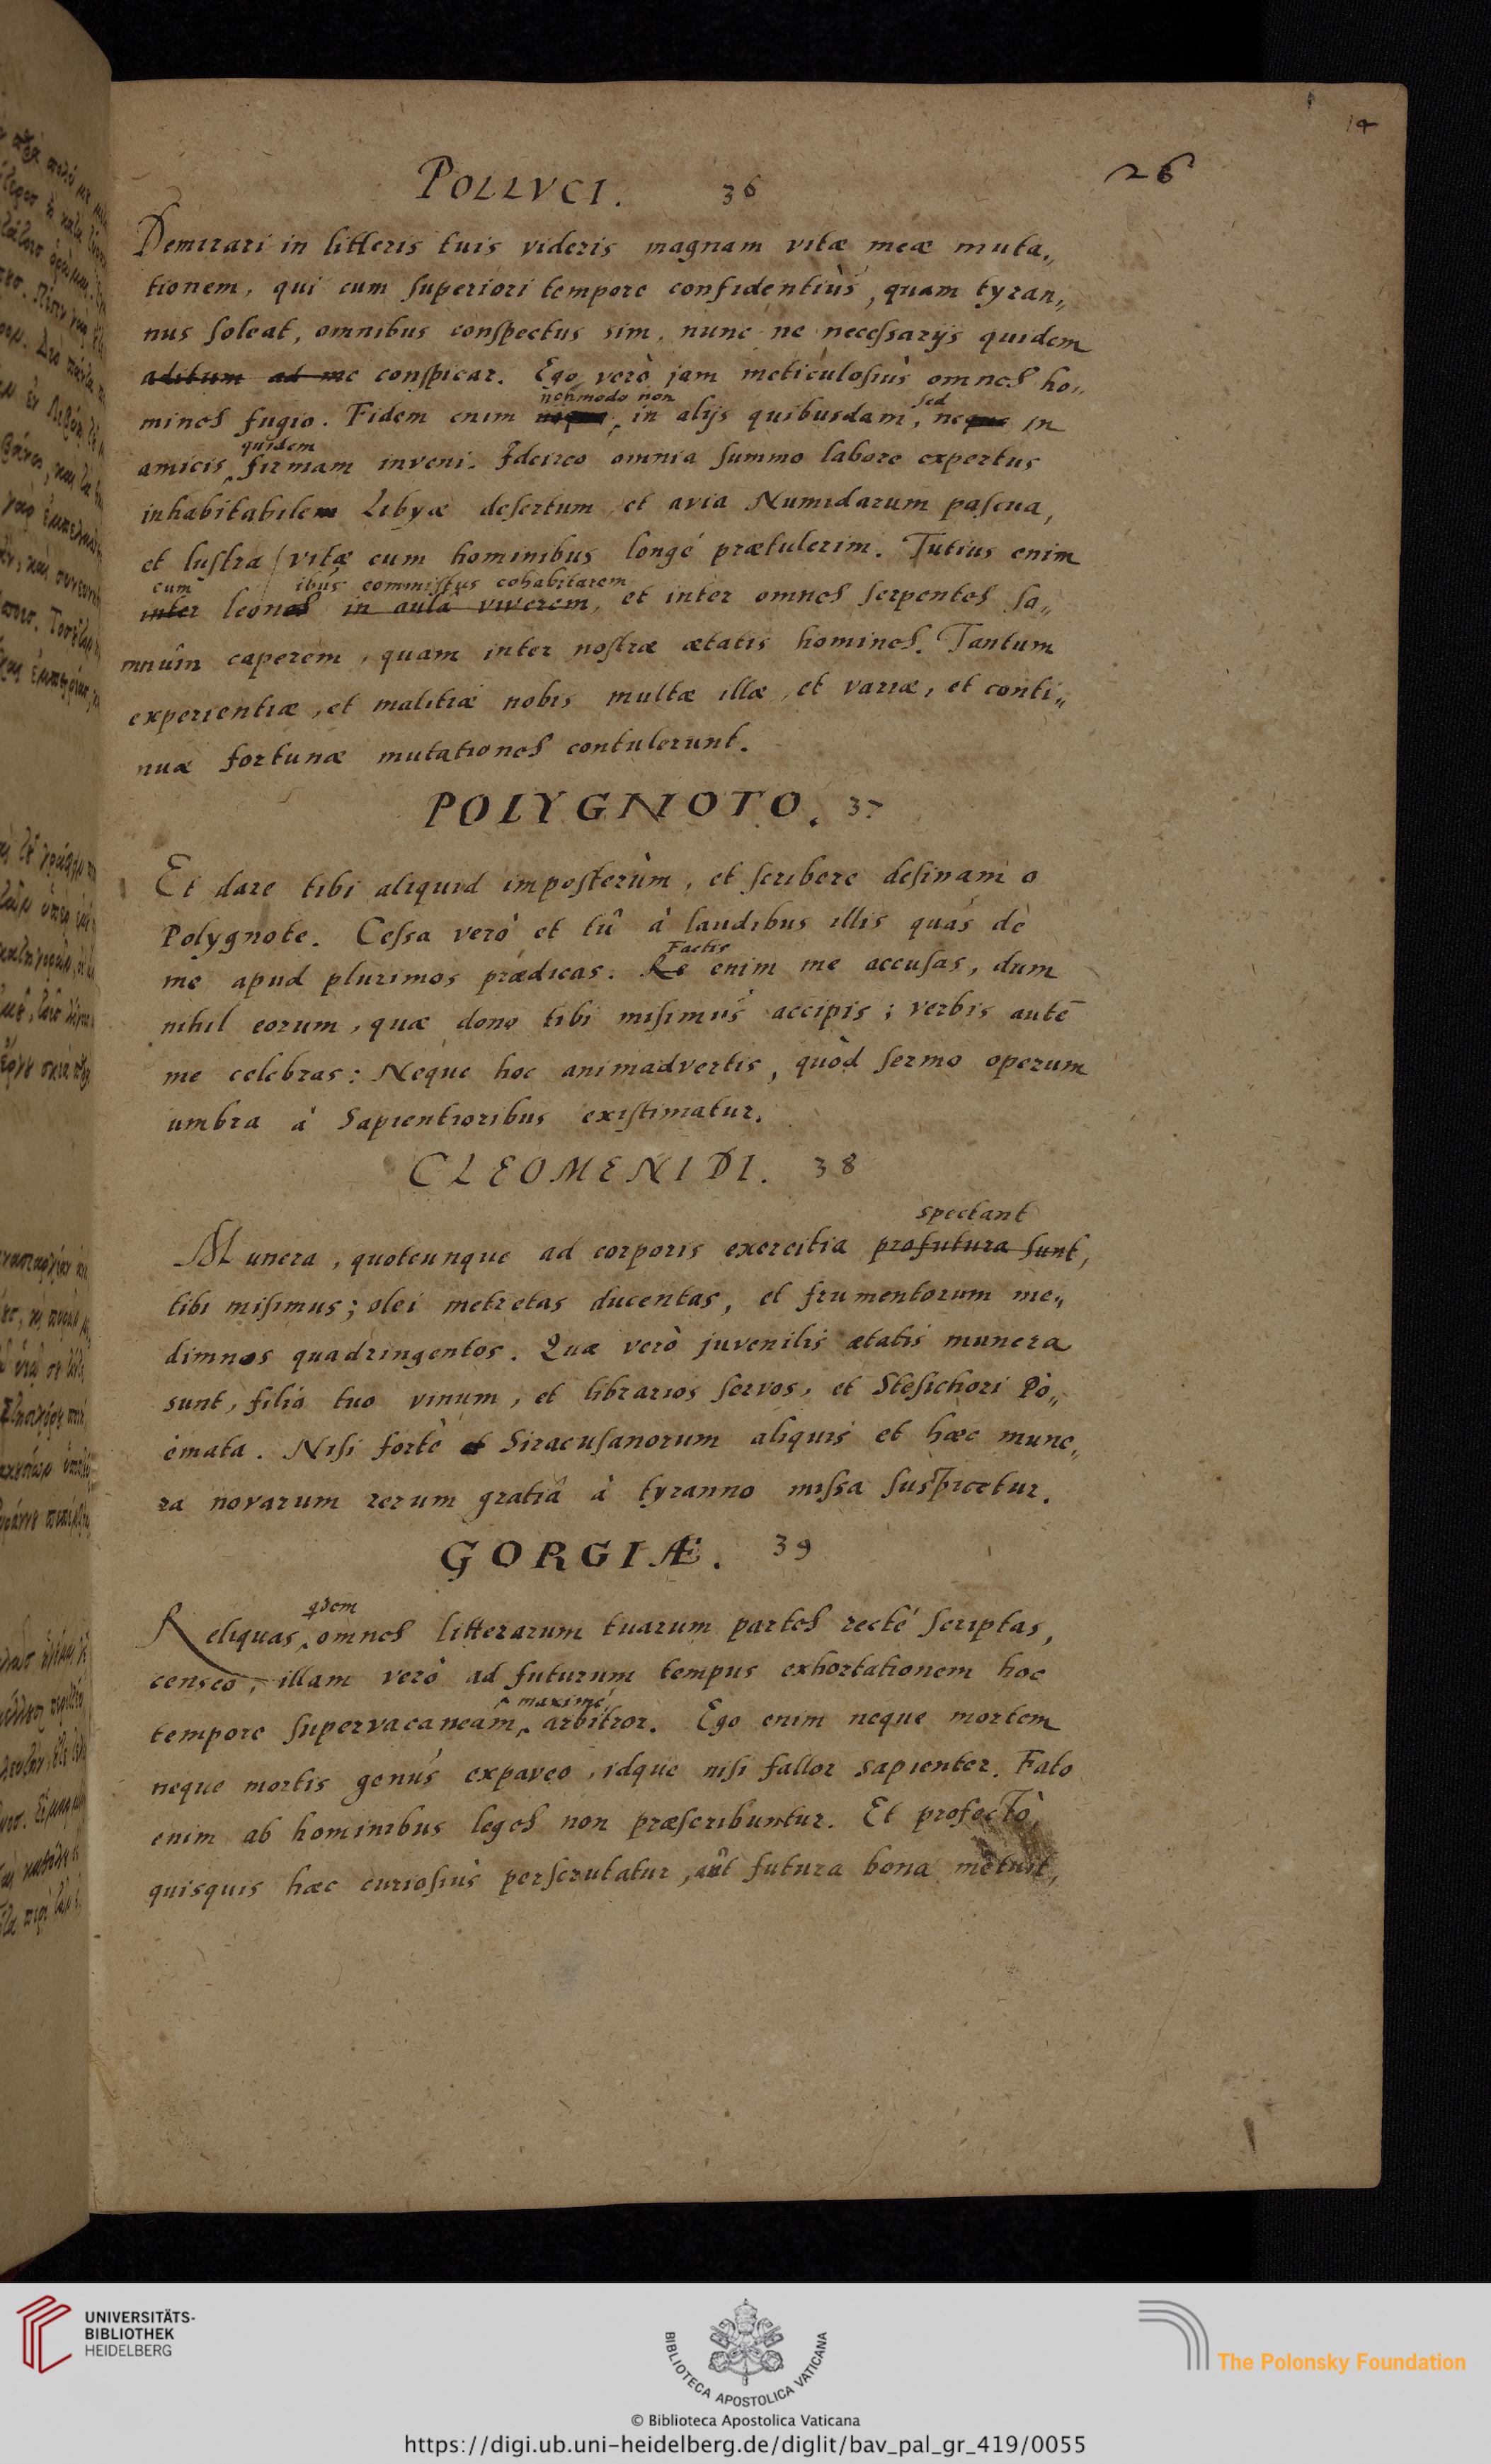 14
26
POLLVCI. 36
Demirari in litteris tuis videris magnam vitæ meæ muta„
tionem, qui cum superiori tempore confidentiùs, quam tyran„
nus soleat, omnibus conspectus sim, nunc ne necessarijs quidem
aditum ad me conspicar. Ego verò jam meticulosiùs omnes ho„
nonmodo non sed
mines fugio. Fidem enim neque, in alijs quibusdam, neque in
quidem
amicis firmam inveni. Idcirco omnia summo labore expertus
inhabitabilem Libyæ desertum et avia Numidarum pascua,
et lustra vitæ cum hominibus longé prætulerim. Tutius enim
cum ibus commistus cohabitarem
inter leones in aulâ viverem, et inter omnes serpentes so„
mnum caperem, quam inter nostræ ætatis homines. Tantum
experientiæ, et malitiæ nobis multæ illæ, et variæ, et conti„
nuæ fortunæ mutationes contulerunt.
POLYGNOTO. 37
Et dare tibi aliquid imposterùm, et scribere desinam o
Polygnote. Cessa verò et tû à laudibus illis quas de
Factis
me apud plurimos prædicas. Re enim me accusas, dum
nihil eorum, quæ dono tibi misimus accipis; verbis autē
me celebras: Neque hoc animadvertis, quòd sermo operum
umbra à Sapientioribus existimatur.
CLEOMENIDI. 38
spectant
Munera, quotcunque ad corporis exercitia profutura sunt,
tibi misimus; olei metretas ducentas, et frumentorum me„
dimnos quadringentos. Quæ verò juvenilis ætatis munera
sunt, filio tuo vinum, et librarios servos, et Stesichori Po„
emata. Nisi fortè et Siracusanorum aliquis et hæc mune„
ra novarum rerum gratiâ à tyranno missa suspicetur.
GORGIÆ. 39
qdem
Reliquas omnes litterarum tuarum partes recté scriptas,
censeo, illam verò ad futurum tempus exhortationem hoc
maximé
tempore supervacaneam arbitror. Ego enim neque mortem
neque mortis genus expaveo, idque nisi fallor sapienter. Fato
enim ab hominibus leges non præscribuntur. Et profectò,
quisquis hæc curiosiùs perscrutatur, aût futura bona metuit,
UNIVERSITÄTS-
BIBLIOTHEK
HEIDELBERG
BIBLIOTECA APOSTOLICA VATICANA
© Biblioteca Apostolica Vaticana
The Polonsky Foundation
https://digi.ub.uni-heidelberg.de/diglit/bav_pal_gr_419/0055